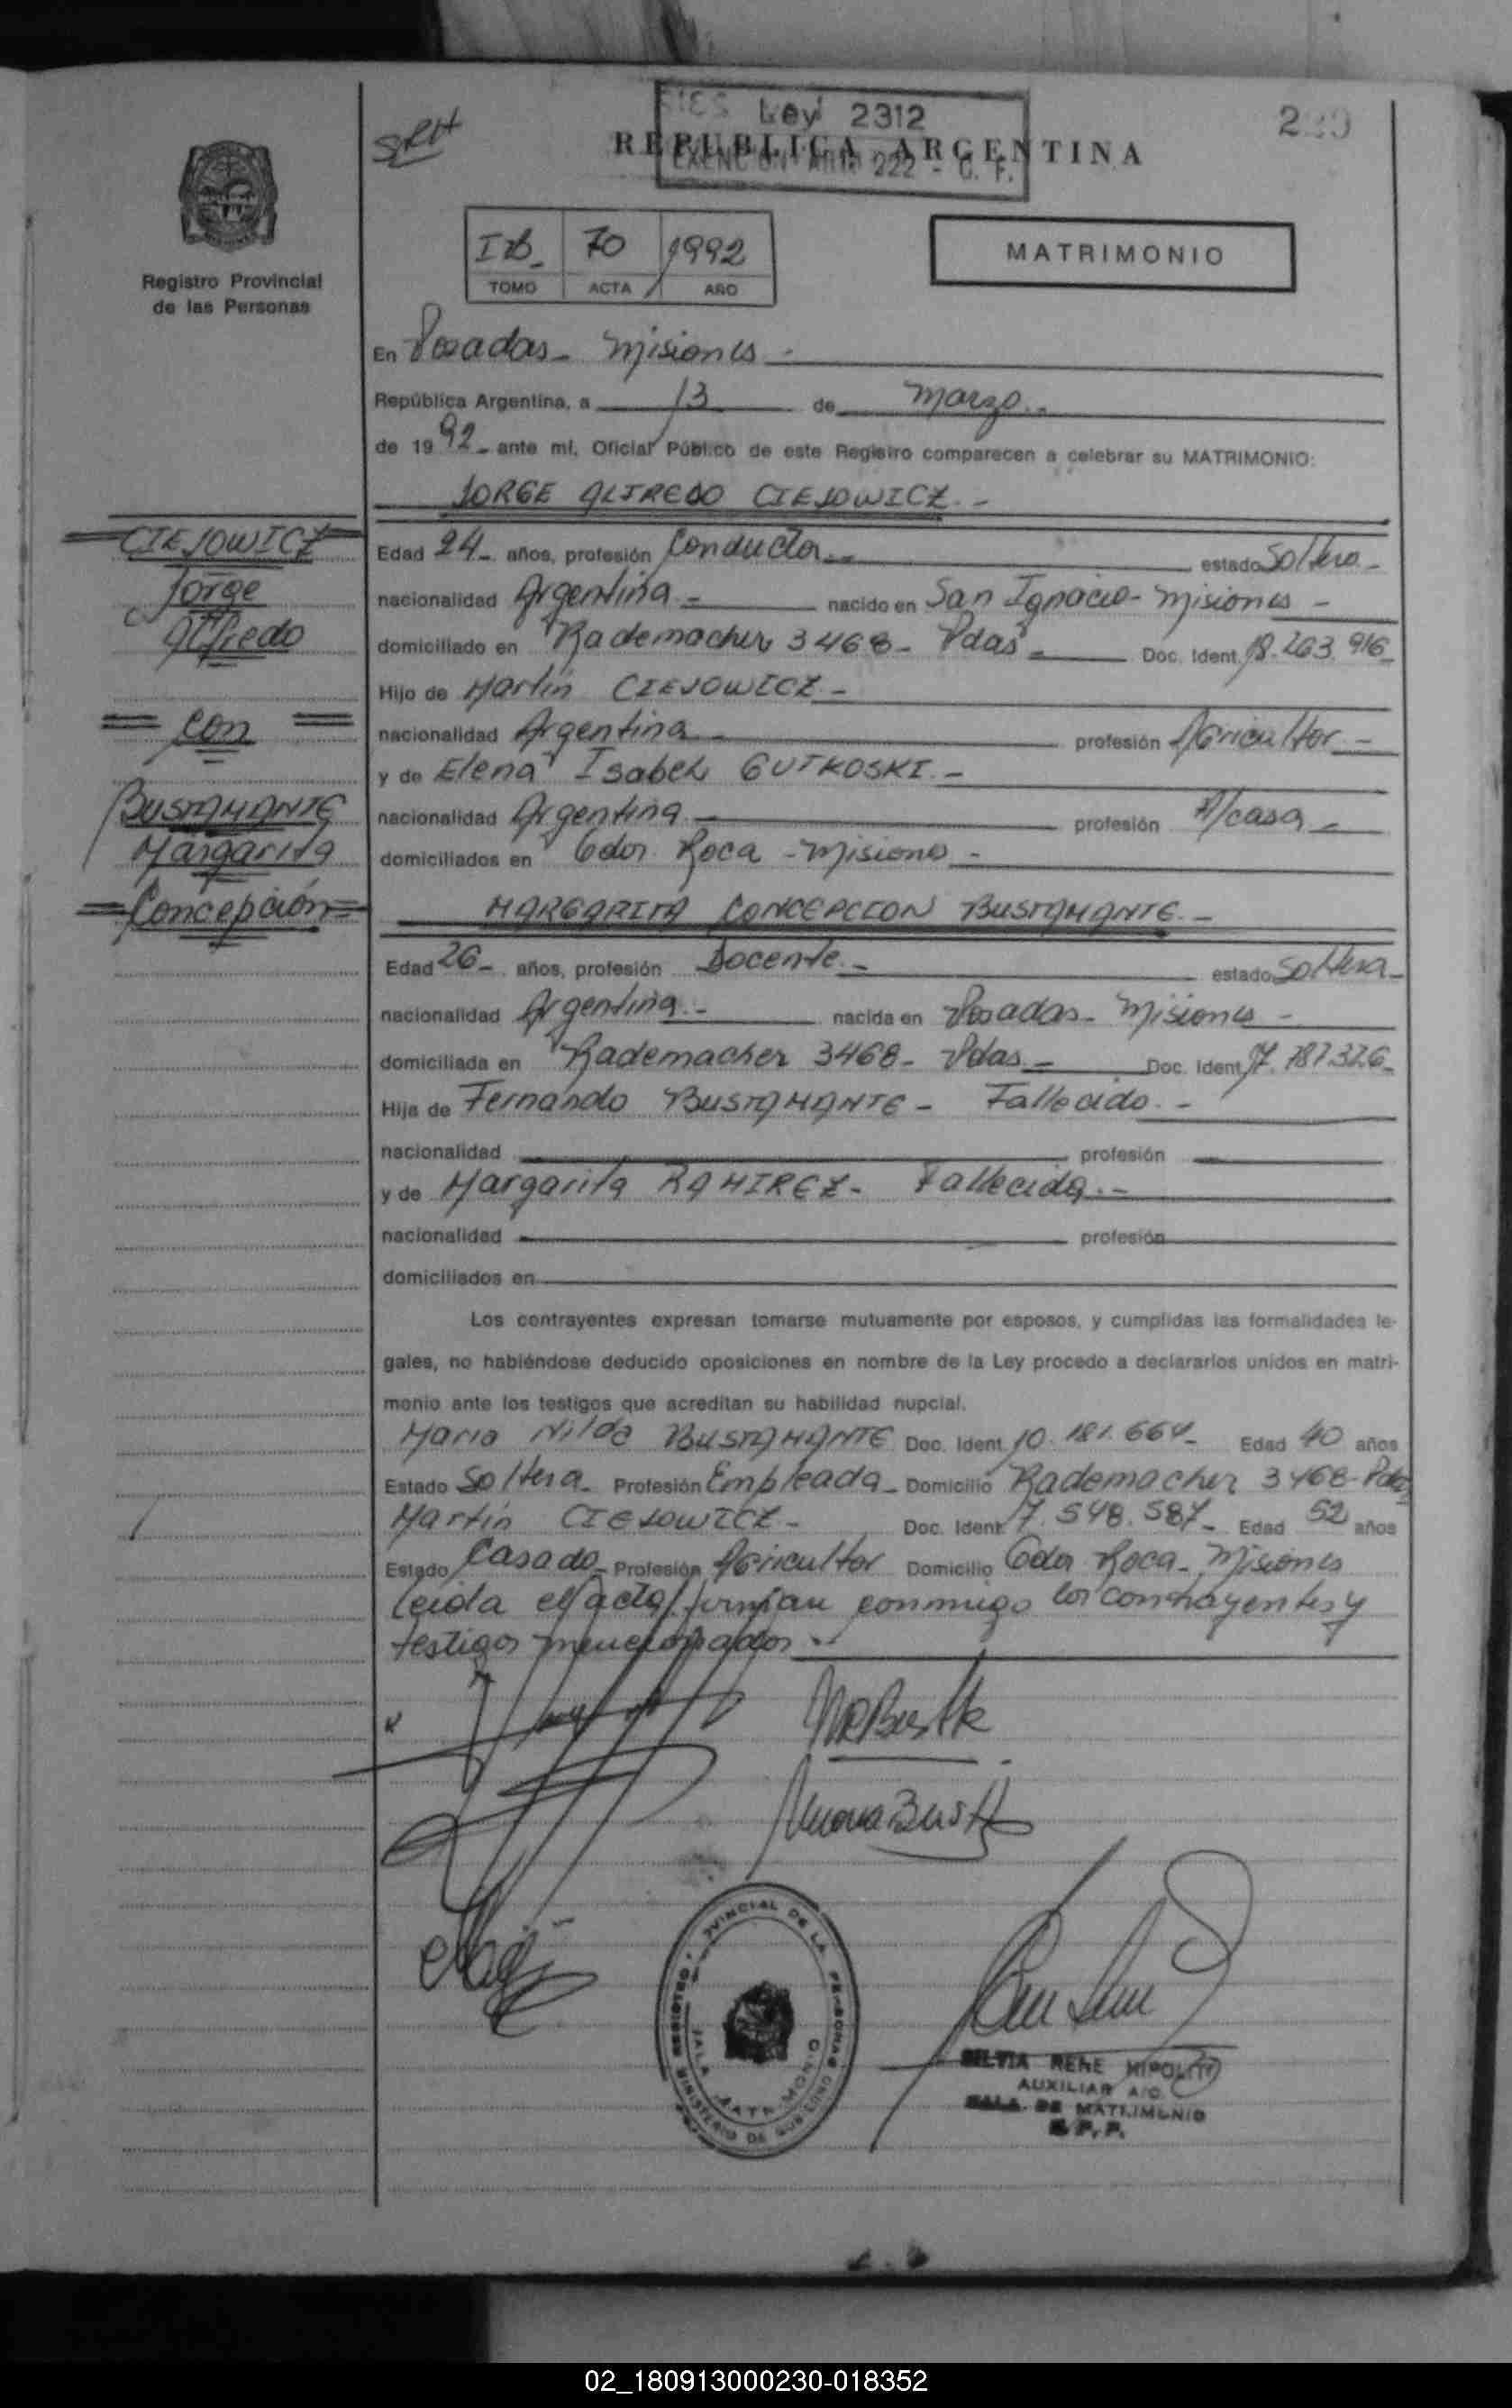 SRH
Ley 2312
EXENCION ART. 222 - C. F.
REPUBLICA ARGENTINA
Registro Provincial
de las Personas
IB 70 1992
TOMO ACTA AÑO
MATRIMONIO
En Posadas - Misiones -
República Argentina, a 13 de Marzo -
de 1992 - ante mí, Oficial Público de este Registro comparecen a celebrar su MATRIMONIO:
JORGE ALFREDO CIEJOWICZ -
CIEJOWICZ
Jorge
Alfredo
= con =
BUSTAMANTE
Margarita
= Concepción =
Edad 24 - años, profesión Conductor - estado Soltero -
nacionalidad Argentina - nacido en San Ignacio - Misiones -
domiciliado en Rademacher 3468 - Pdas - Doc. Ident. 18.263.916 -
Hijo de Martín CIEJOWICZ -
nacionalidad Argentina - profesión Agricultor -
y de Elena Isabel GUTKOSKI -
nacionalidad Argentina - profesión A/casa -
domiciliados en Gdor. Roca - Misiones -
MARGARITA CONCEPCION BUSTAMANTE -
Edad 26 - años, profesión Docente - estado Soltera -
nacionalidad Argentina - nacida en Posadas - Misiones -
domiciliada en Rademacher 3468 - Pdas - Doc. Ident. 17.787.326 -
Hija de Fernando BUSTAMANTE - Fallecido -
nacionalidad profesión
y de Margarita RAMIREZ - Fallecida -
nacionalidad profesión
domiciliados en
Los contrayentes expresan tomarse mutuamente por esposos, y cumplidas las formalidades le-
gales, no habiéndose deducido oposiciones en nombre de la Ley procedo a declararlos unidos en matri-
monio ante los testigos que acreditan su habilidad nupcial.
Maria Nilda BUSTAMANTE Doc. Ident. 10.181.664 - Edad 40 años
Estado Soltera - Profesión Empleada - Domicilio Rademacher 3468 - Pdas
Martín CIEJOWICZ - Doc. Ident. 7.548.587 - Edad 52 años
Estado Casado - Profesión Agricultor Domicilio Gdor. Roca - Misiones
Leida el acta, firman conmigo los contrayentes y
testigos mencionados -
REGISTRO PROVINCIAL DE LAS PERSONAS
MINISTERIO DE GOBIERNO
SALA MATRIMONIO
SILVIA RENE HIPOLITO
AUXILIAR A/C
SALA DE MATRIMONIO
R.P.P.
02_180913000230-018352